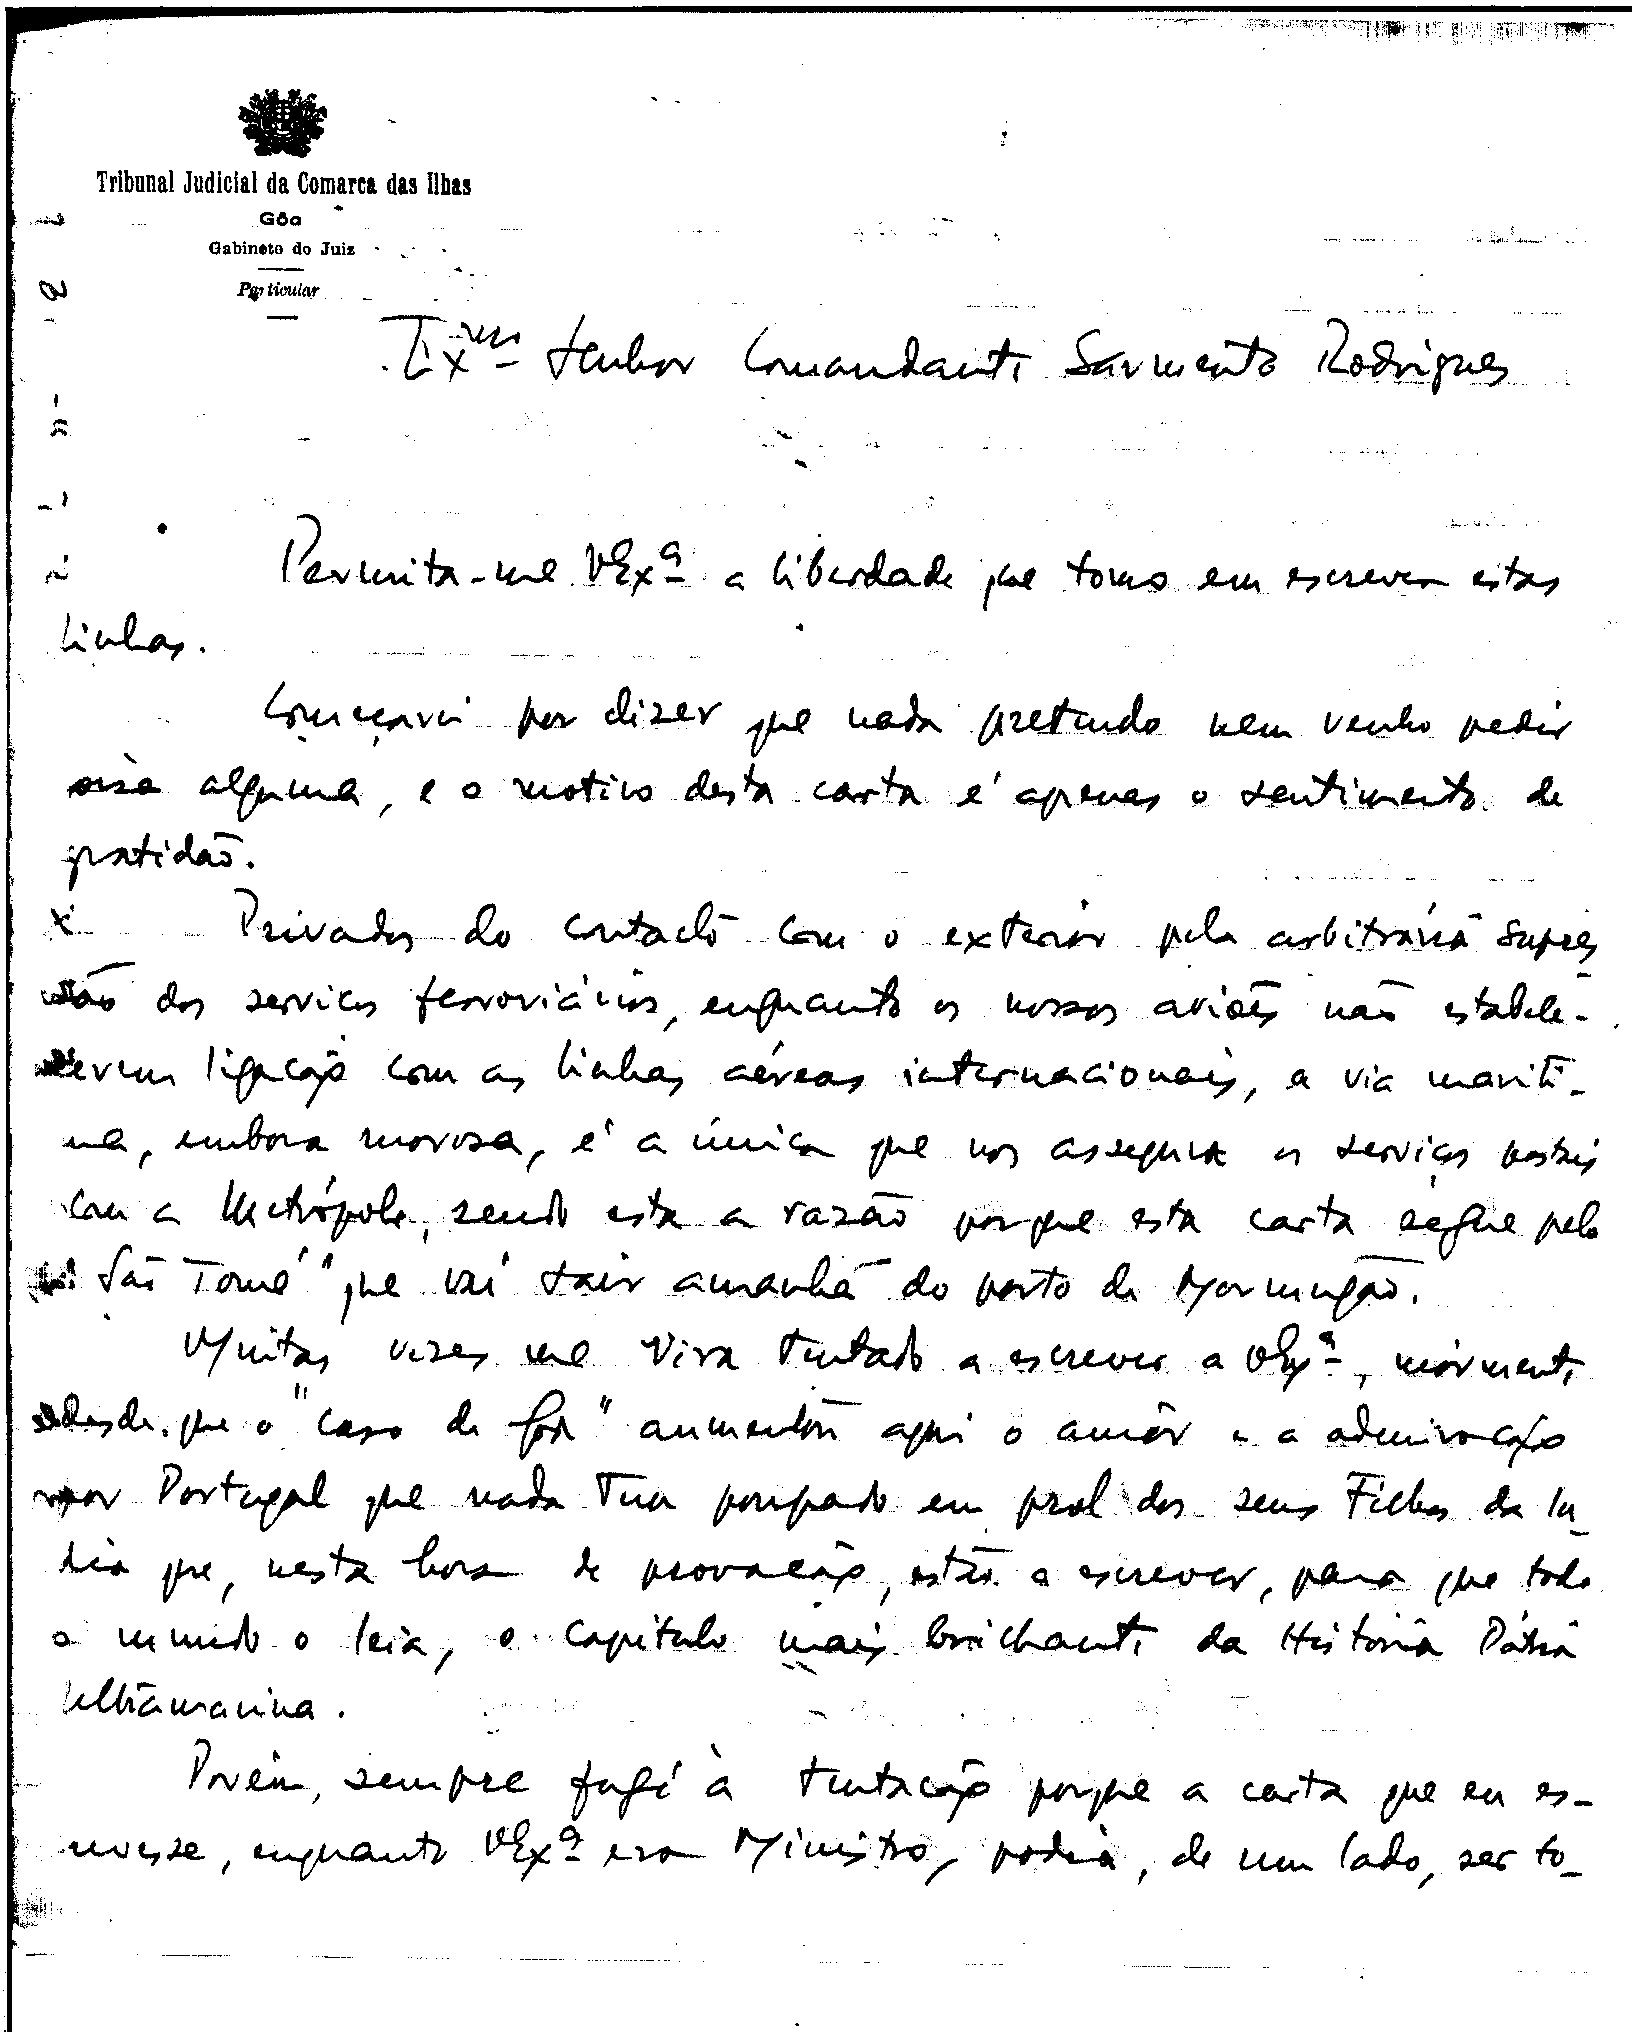 Tribunal Judicial da Comarca das Ilhas
Gôa
Gabinete do Juiz
Particular
Exmo Senhor Comandante Sarmento Rodrigues
Permita-me VExª a liberdade que tomo em escrever estas
linhas.
Começarei por dizer que nada pretendo nem venho pedir
oisa alguma, e o motivo desta carta é apenas o sentimento de
gratidão.
x Privados do contacto com o exterior pela arbitrária supres
são dos serviços ferroviários, enquanto os nossos aviões não estabele-
cerem ligação com as linhas aéreas internacionais, a via maríti-
ma, embora morosa, é a única que nos assegura os serviços postais
com a Metrópole, sendo esta a razão porque esta carta segue pelo
"São Tomé" que vai sair amanhã do porto de Mormugão.
Muitas vezes me vira tentado a escrever a VExª, mórmente
desde que o "caso de Goa" aumentou aqui o amôr e a admiração
por Portugal que nada tem poupado em prol dos seus Filhos da Ín-
dia que, nesta hora de provação, estão a escrever, para que todo
o mundo o leia, o capítulo mais brilhante da História Pátria
Ultramarina.
Porém, sempre fugi à tentação porque a carta que eu es-
crevesse, enquanto VExª era Ministro, podia, de um lado, ser to-